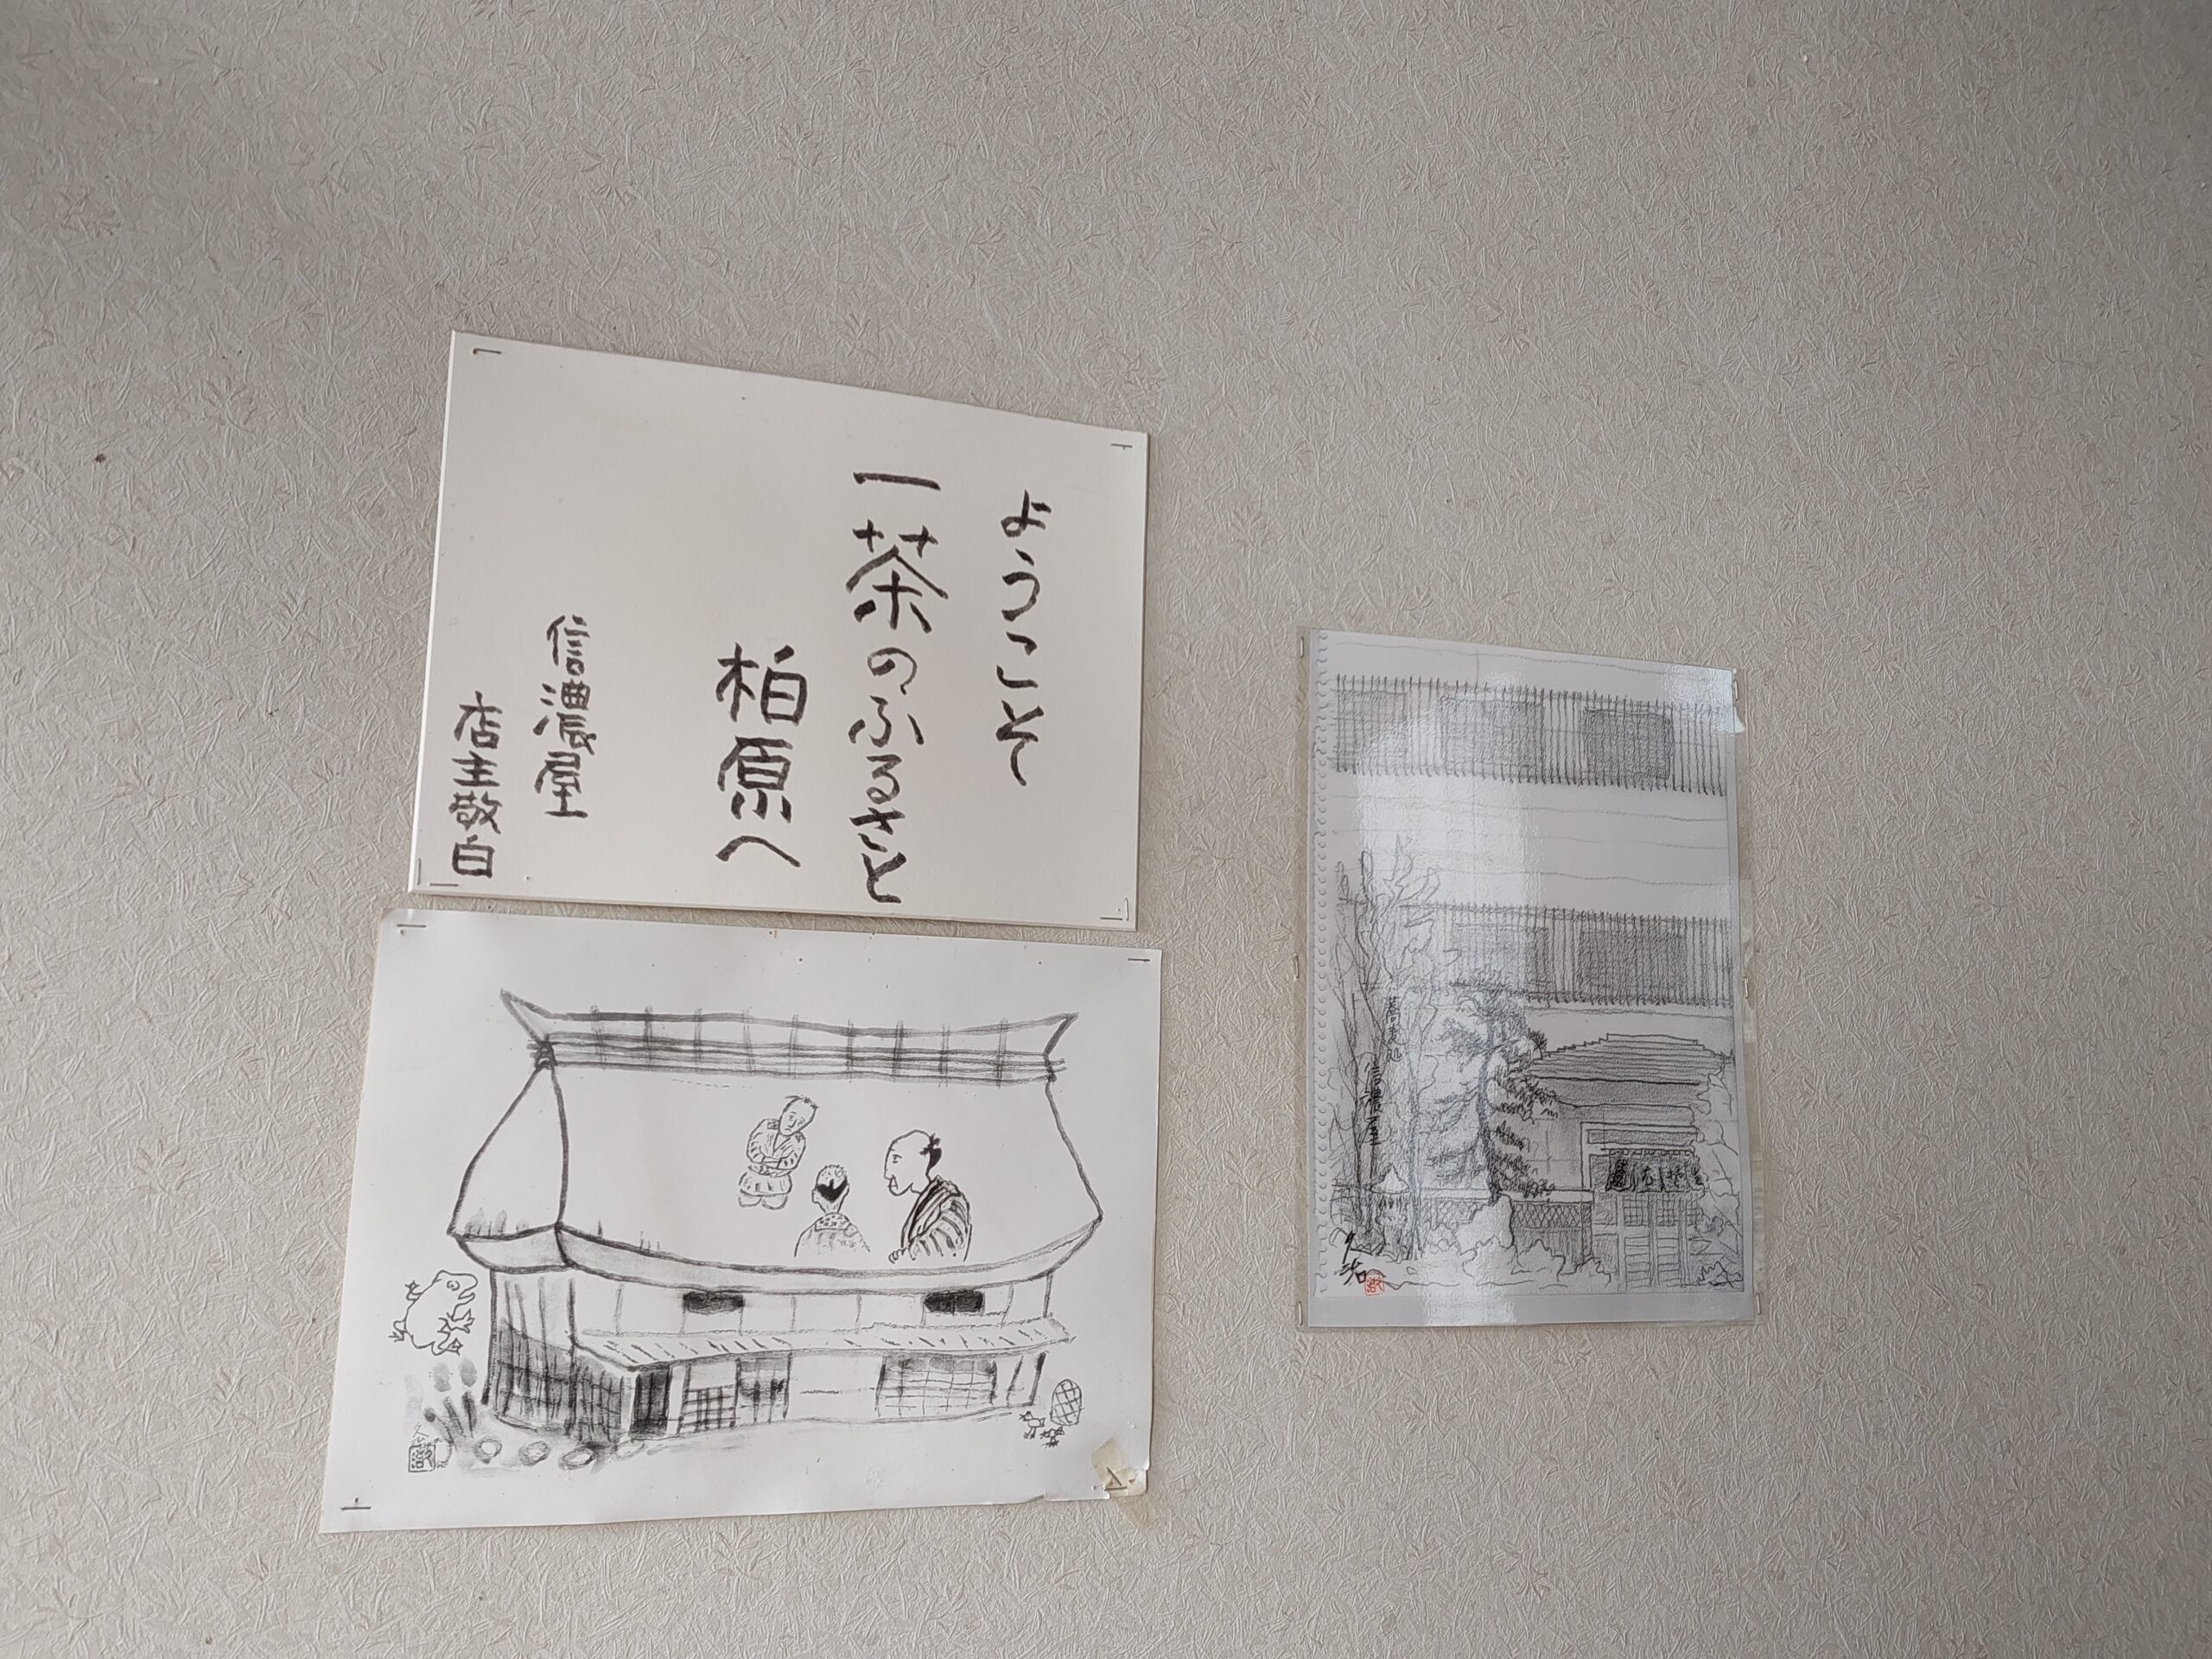 ようこそ
一茶のふるさと
柏原へ
信濃屋
店主敬白
信濃屋